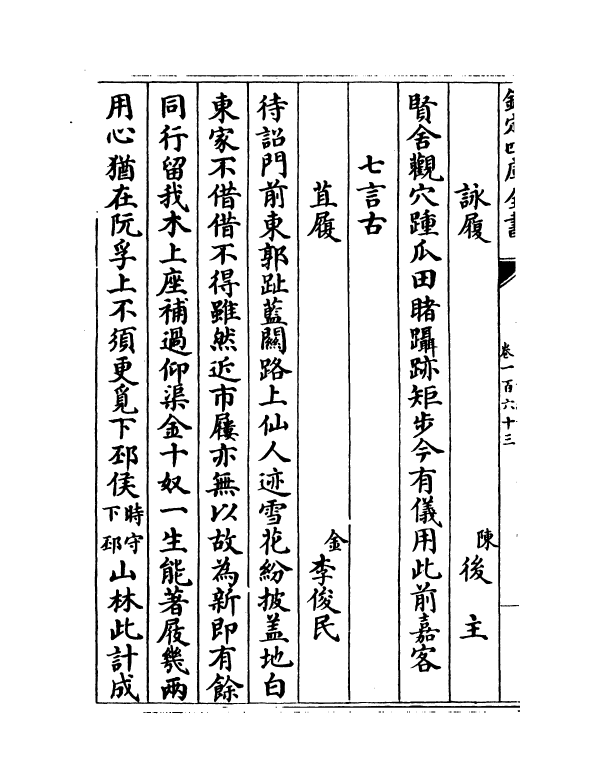 欽定四庫全書
卷一百六十三
詠履 陳後主
賢舍觀穴踵瓜田睹躡跡矩步今有儀用此前嘉客
七言古
苴履 金李俊民
待詔門前東郭趾藍關路上仙人迹雪花紛披蓋地白
東家不借借不得雖然近市屨亦無以故為新即有餘
同行留我木上座補過仰渠金十奴一生能著屐幾兩
用心猶在阮孚上不須更覓下邳侯時守下邳山林此計成